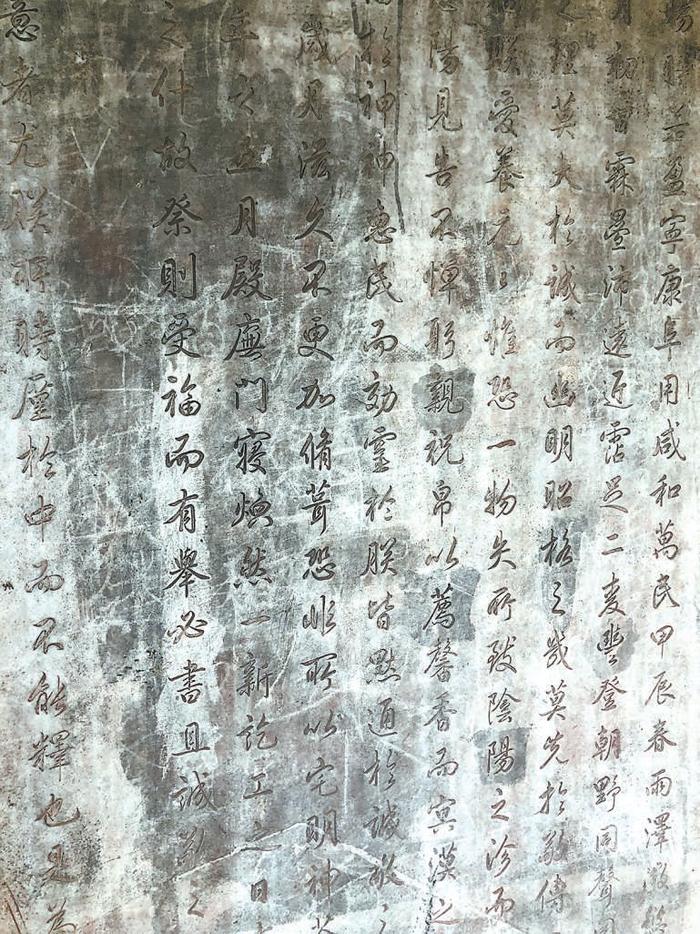 盈寧康阜用咸和萬民甲辰春雨澤
霖曇沛遠近霑足二麥豐登朝野同聲
理莫大於誠而幽明昭格之幾莫先於敬傳
朕愛養元元惟恐一物失所致陰陽之沴而
陽見告不憚躬親祝帛以薦馨香而冥漠之
於神神惠民而効靈於朕皆默通於誠敬之
歲月滋久不更加脩葺恐非所以宅明神
年之五月殿廡門寢煥然一新訖工之日
之什故祭則受福而有舉必書且誠敬之
意者尤朕所時廑於中而不能釋也是為